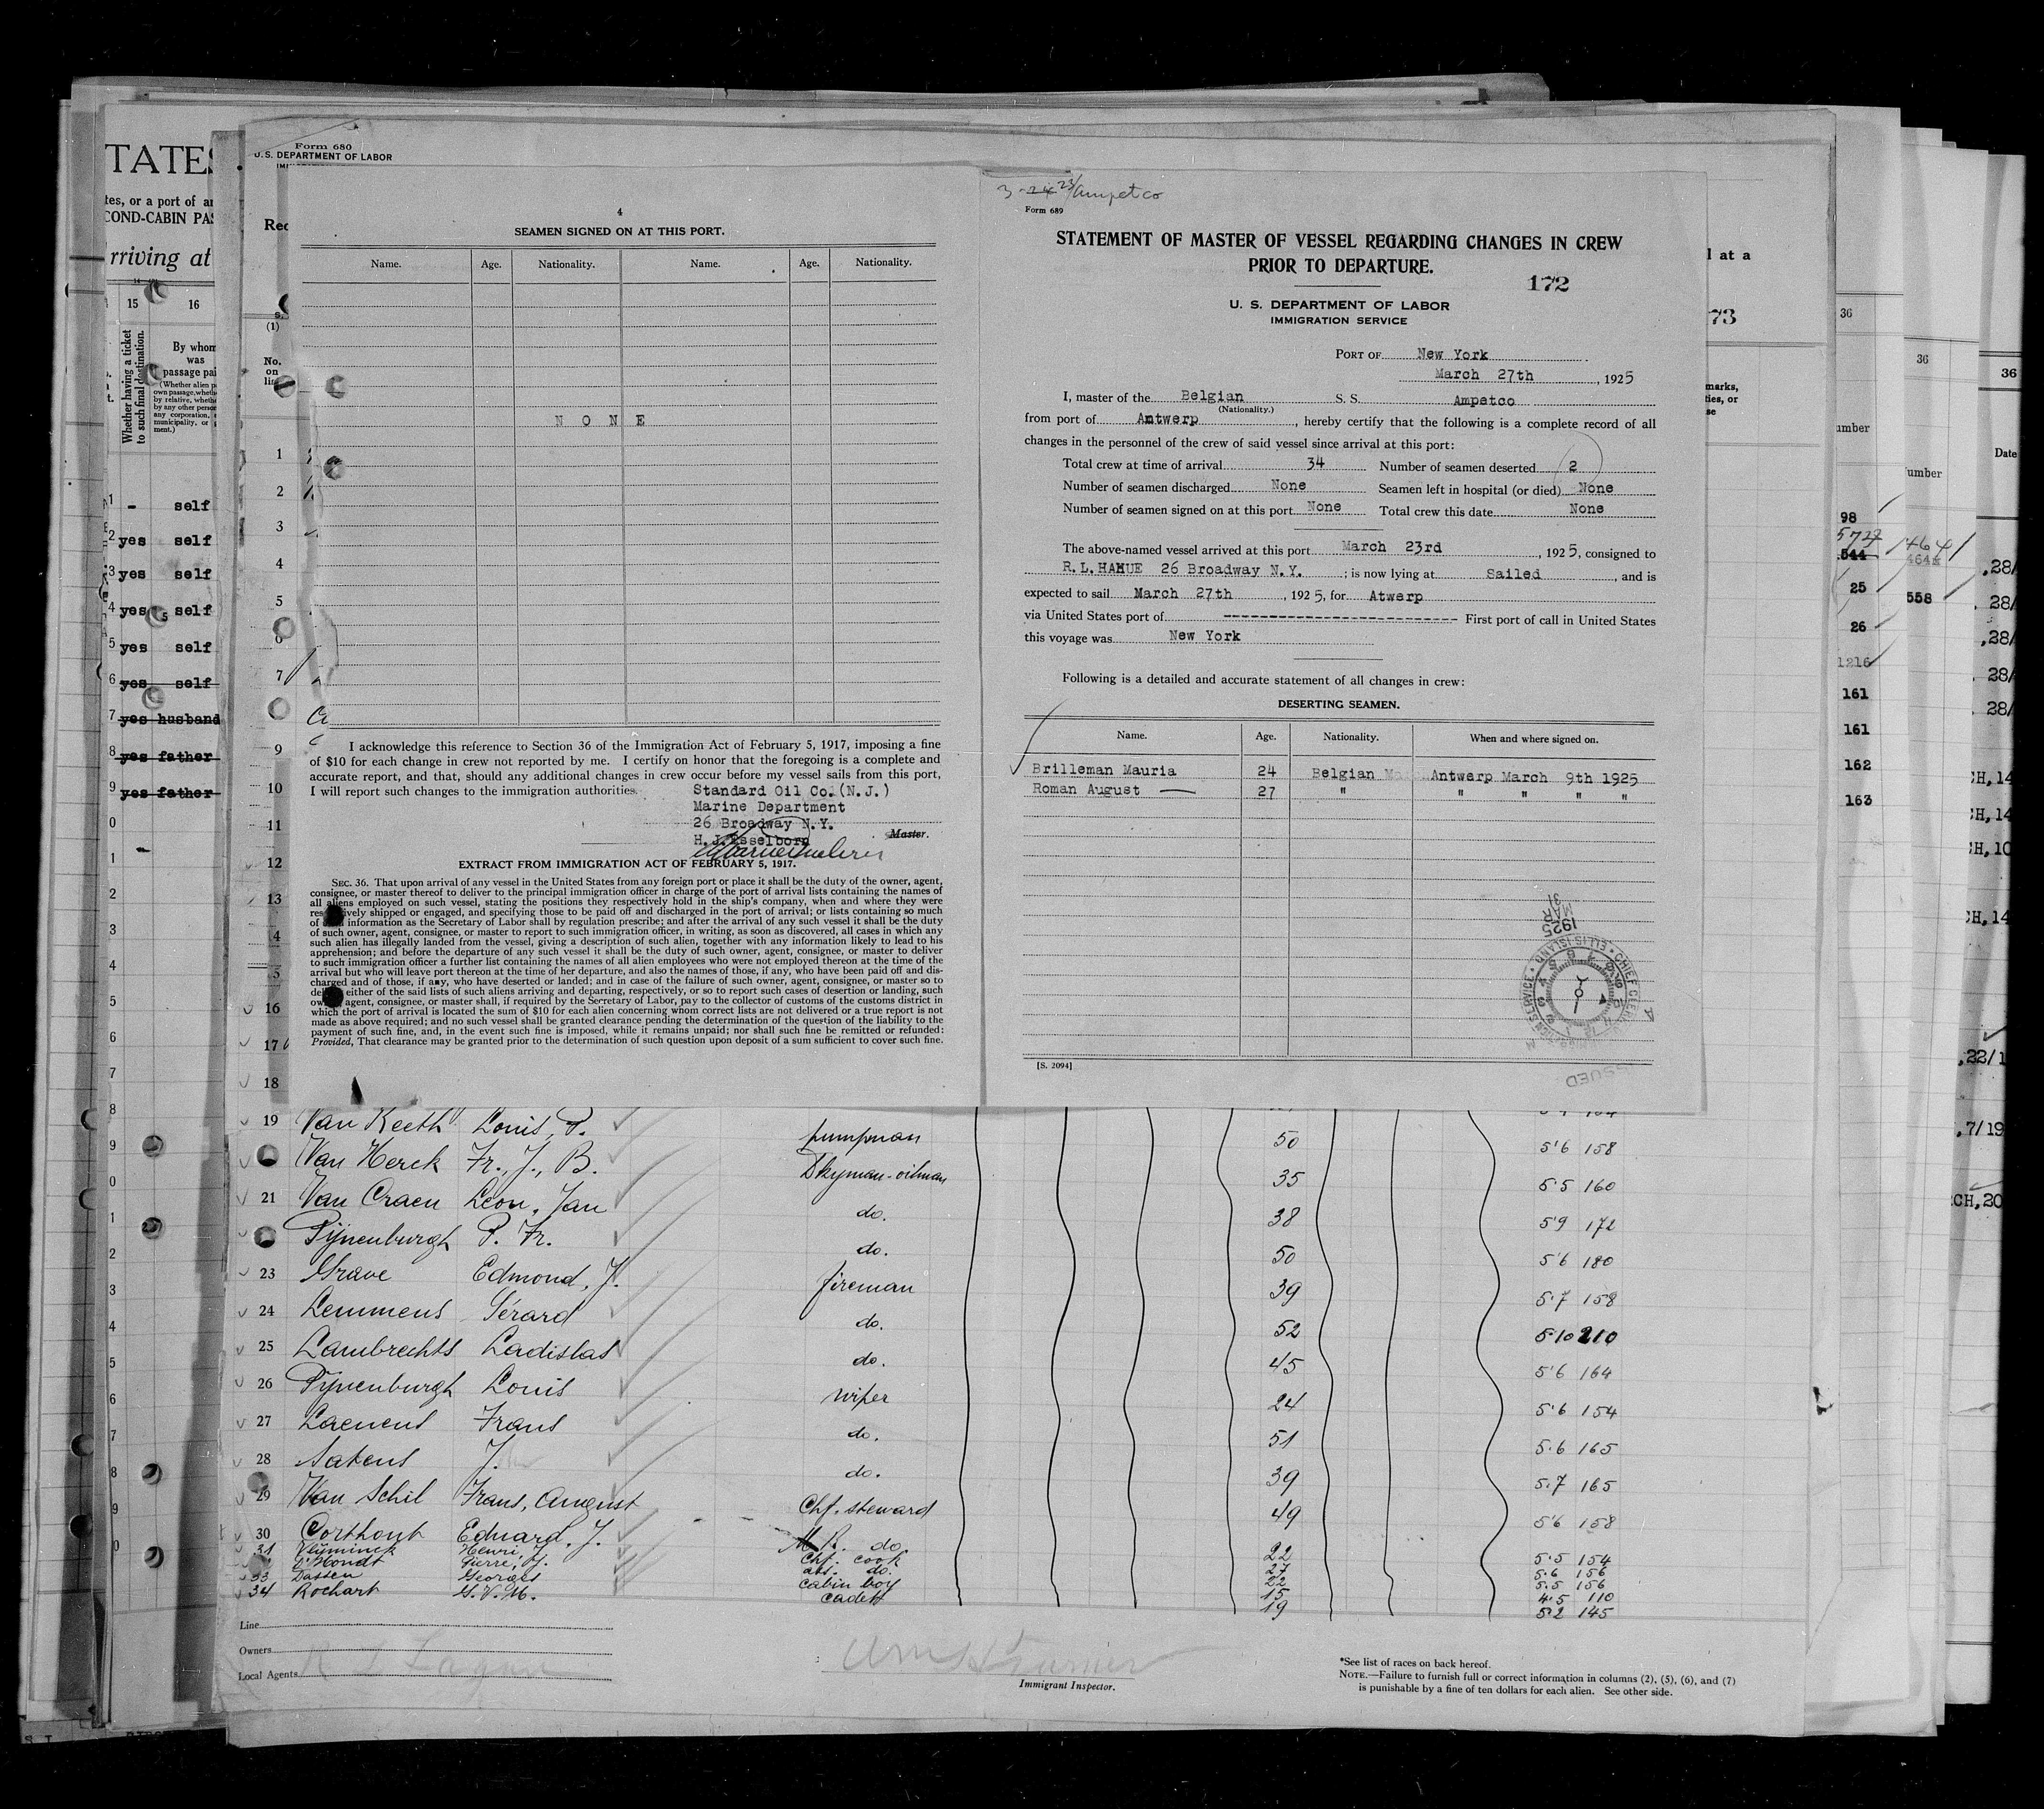 Form 680
U. S. DEPARTMENT OF LABOR
TATES
tes, or a port of
COND-CABIN PAS
rriving at
15 16
Whether having a ticket to such final destination.
By whom
was
passage pai
(Whether alien
own passage, whether
by relative, whether
by any other person
any corporation,
municipality, or
ment.)
1 - self
2 yes self
3 yes self
4 yes self
5 yes self
6 yes self
7 yes husband
8 yes father
9 yes father
Rec
(1)
No.
on
4
SEAMEN SIGNED ON AT THIS PORT.
Name. Age. Nationality. Name. Age. Nationality.
N O N E
I acknowledge this reference to Section 36 of the Immigration Act of February 5, 1917, imposing a fine
of $10 for each change in crew not reported by me. I certify on honor that the foregoing is a complete and
accurate report, and that, should any additional changes in crew occur before my vessel sails from this port,
I will report such changes to the immigration authorities.
Standard Oil Co.(N.J.)
Marine Department
26 Broadway N.Y.
H.J.Esselborn
Master.
EXTRACT FROM IMMIGRATION ACT OF FEBRUARY 5, 1917.
SEC. 36. That upon arrival of any vessel in the United States from any foreign port or place it shall be the duty of the owner, agent,
consignee, or master thereof to deliver to the principal immigration officer in charge of the port of arrival lists containing the names of
all aliens employed on such vessel, stating the positions they respectively hold in the ship's company, when and where they were
respectively shipped or engaged, and specifying those to be paid off and discharged in the port of arrival; or lists containing so much
of such information as the Secretary of Labor shall by regulation prescribe; and after the arrival of any such vessel it shall be the duty
of such owner, agent, consignee, or master to report to such immigration officer, in writing, as soon as discovered, all cases in which any
such alien has illegally landed from the vessel, giving a description of such alien, together with any information likely to lead to his
apprehension; and before the departure of any such vessel it shall be the duty of such owner, agent, consignee, or master to deliver
to such immigration officer a further list containing the names of all alien employees who were not employed thereon at the time of the
arrival but who will leave port thereon at the time of her departure, and also the names of those, if any, who have been paid off and dis-
charged and of those, if any, who have deserted or landed; and in case of the failure of such owner, agent, consignee, or master so to
deliver either of the said lists of such aliens arriving and departing, respectively, or so to report such cases of desertion or landing, such
owner, agent, consignee, or master shall, if required by the Secretary of Labor, pay to the collector of customs of the customs district in
which the port of arrival is located the sum of $10 for each alien concerning whom correct lists are not delivered or a true report is not
made as above required; and no such vessel shall be granted clearance pending the determination of the question of the liability to the
payment of such fine, and, in the event such fine is imposed, while it remains unpaid; nor shall such fine be remitted or refunded:
Provided, That clearance may be granted prior to the determination of such question upon deposit of a sum sufficient to cover such fine.
3-24 23/Ampetco
Form 689
STATEMENT OF MASTER OF VESSEL REGARDING CHANGES IN CREW
PRIOR TO DEPARTURE.
172
U. S. DEPARTMENT OF LABOR
IMMIGRATION SERVICE
PORT OF New York
March 27th, 1925
I, master of the Belgian S. S. Ampetco
(Nationality.)
from port of Antwerp, hereby certify that the following is a complete record of all
changes in the personnel of the crew of said vessel since arrival at this port:
Total crew at time of arrival 34 Number of seamen deserted 2
Number of seamen discharged None Seamen left in hospital (or died) None
Number of seamen signed on at this port None Total crew this date None
The above-named vessel arrived at this port March 23rd, 1925, consigned to
R.L.HAHUE 26 Broadway N.Y.; is now lying at Sailed, and is
expected to sail March 27th, 1925, for Atwerp
via United States port of ------------------------ First port of call in United States
this voyage was New York
Following is a detailed and accurate statement of all changes in crew:
DESERTING SEAMEN.
Name. Age. Nationality. When and where signed on.
Brilleman Mauria 24 Belgian Antwerp March 9th 1925
Roman August 27 " " " " "
1925
MAR
31
ELLIS ISLAND
[S. 2094]
l at a
73
marks,
ties, or
se
36
umber
98
544
25
26
1216
161
161
162
163
36
umber
464
558
36
Date
,28/
. 28/
,28/
. 28/
. 28/
CH,14
CH,14
CH,10
CH,14
,22/1
,7/19
CH,20
19 Van Reeth Louis, P. pumpman 50 5'6 158
Van Herck Fr., J., B. Dkyman-oilman 35 5'5 160
21 Van Craen Leon, Jan do. 38 5'9 172
Pijnenburgh P. Fr. do. 50 5'6 180
23 Grave Edmond, J. fireman 39 5'7 158
24 Lemmens Gérard do. 52 5'10 210
25 Lambrechts Ladislas do. 45 5'6 164
26 Pijnenburgh Louis wiper 24 5'6 154
27 Laenens Frans do. 51 5'6 165
28 J. do. 39 5'7 165
29 Van Schil Frans, August Chf. steward 49 5'6 158
30 Oorthout Eduard, J. M.R. do. 22 5'5 154
31 Vlyminck Henri, J. Chf. cook 27 5'6 156
D'Hondt Pierre, J. ass. do. 22 5'5 156
33 Dassen Georges cabin boy 15 4'5 110
34 Rochart G. V. M. cadet 19 5'2 145
Line
Owners
Local Agents
Immigrant Inspector.
*See list of races on back hereof.
NOTE.—Failure to furnish full or correct information in columns (2), (5), (6), and (7)
is punishable by a fine of ten dollars for each alien. See other side.